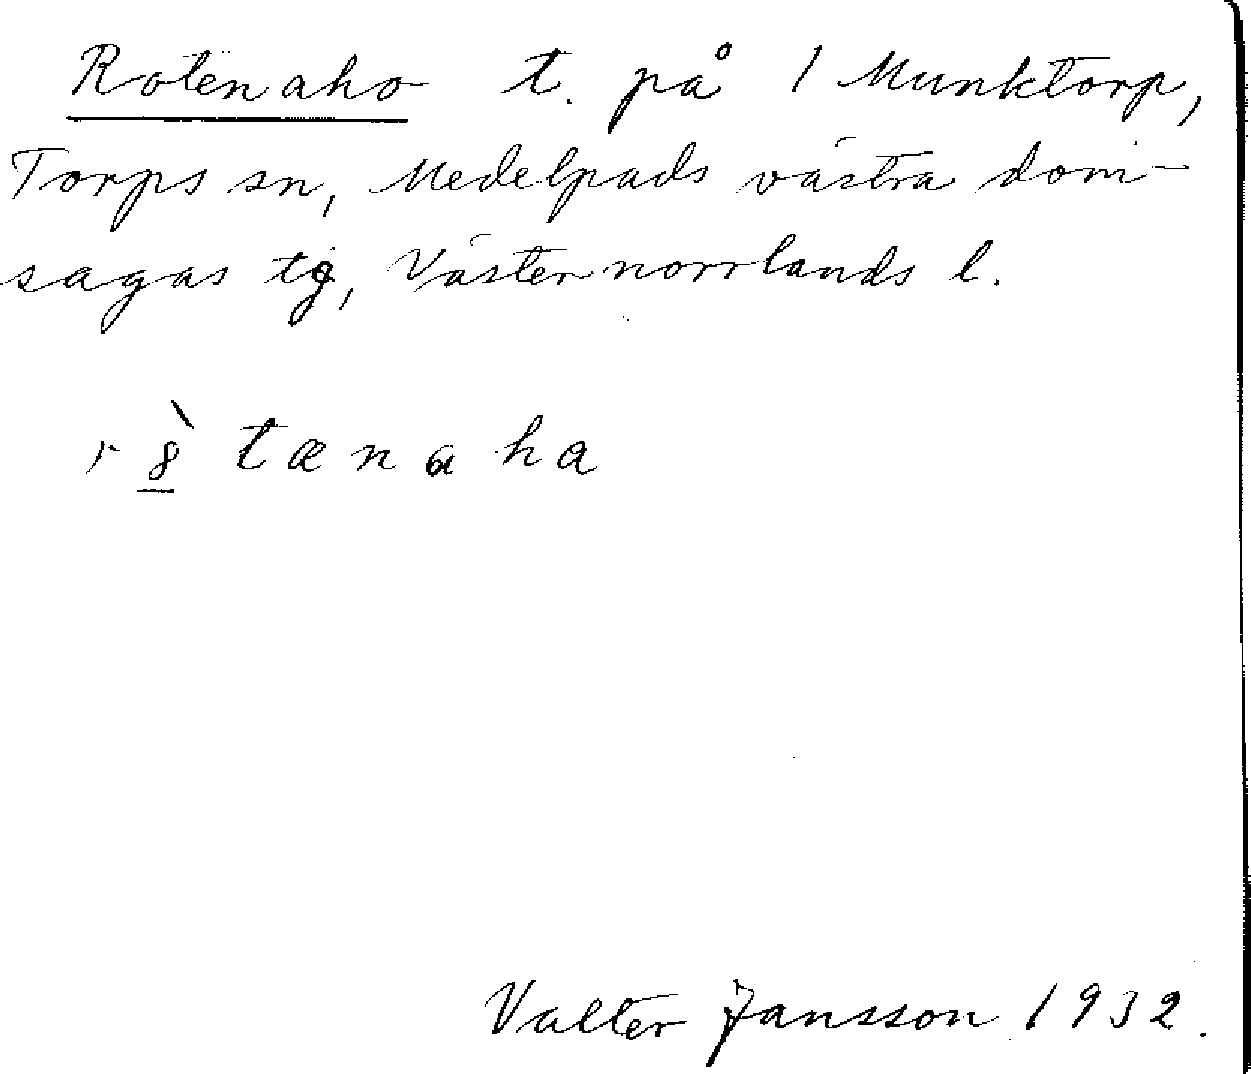 Rotenaho t. på 1 Munktorp,
Torps sn, Medelpads västra dom-
sagas tg, Västernorrlands l.
r 8̲̀ tænaha
Valter Jansson 1932.